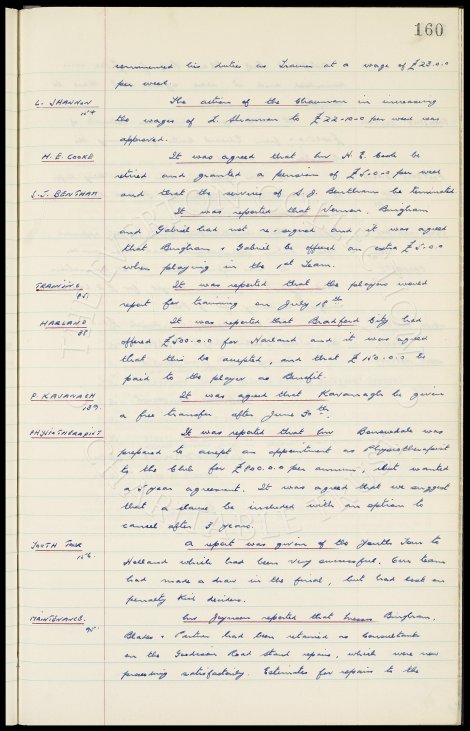 160
commenced his duties as Trainer at a wage of £23.0.0
per week.
L. SHANNON
The action of the Chairman in increasing
154
the wages of L. Shannon to £22-10-0 per week was
approved.
H. E. COOKE
It was agreed that Mr H. E. Cooke be
retired and granted a pension of £5.0.0 per week
L. J. BENTHAM
and that the services of S. J. Bentham be terminated
It was reported that Vernon, Bingham
and Gabriel had not re-signed and it was agreed
that Bingham & Gabriel be offered an extra £5.0.0
when playing in the 1st Team.
TRAINING
It was reported that the players would
151
report for training on July 18th
HARLAND
It was reported that Bradford City had
offered £500.0.0 for Harland and it was agreed
that this be accepted, and that £150.0.0 be
paid to the player as Benefit.
P. KAVANAGH
It was agreed that Kavanagh be given
139
a free transfer after June 30th.
PHYSIOTHERAPIST
It was reported that Mr Borrowdale was
prepared to accept an appointment as Physiotherapist
to the Club for £900.0.0 per annum, but wanted
a 5 year agreement. It was agreed that we suggest
that a clause be included with an option to
cancel after 3 years.
YOUTH TOUR
A report was given of the Youth Tour to
156
Holland which had been very successful. Our team
had made a draw in the final, but had lost on
penalty kick deciders.
MAINTENANCE.
Mr Joynson reported that Bingham,
95
Blades & Partners had been retained as Consultants
on the Goodison Road Stand repairs, which were now
proceeding satisfactorily. Estimates for repairs to the